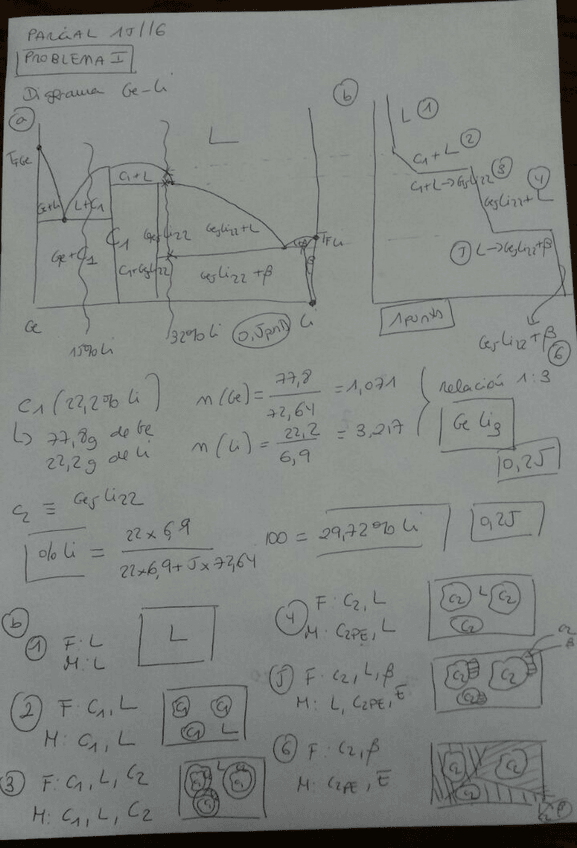 PARCIAL 15/16
PROBLEMA I
Diagrama Ge-Li
a
L
TfGe
Ge+L
L+C1
C1+L
Ge+C1
C1
Ge5Li22
Ge5Li22+L
C1+Ge5Li22
Ge5Li22+β
TfLi
Ge
15%Li
32%Li
0,5pnt
Li
b
L 1
C1+L 2
C1+L→Ge5Li22 3
Ge5Li22+L 4
5 L→Ge5Li22+β
1 punto
Ge5Li22+β 6
C1 (22,2% Li)
↳ 77,8g de Ge
22,2g de Li
n(Ge) = 77,8 / 72,64 = 1,071
n(Li) = 22,2 / 6,9 = 3,217
relación 1:3
GeLi3
0,25
C2 ≡ Ge5Li22
%Li = 22×6,9 / 22×6,9+5×72,64 100 = 29,72% Li
0,25
b
1 F: L
M: L
L
2 F: C1, L
M: C1, L
C1 C1 C1 L
3 F: C1, L, C2
M: C1, L, C2
L C1 C1
4 F: C2, L
M: C2PE, L
C2 L C2 C2
5 F: C2, L, β
M: L, C2PE, E
C2 C2 C2
C2
β
6 F: C2, β
M: C2PE, E
C2 C2 C2
C2 β